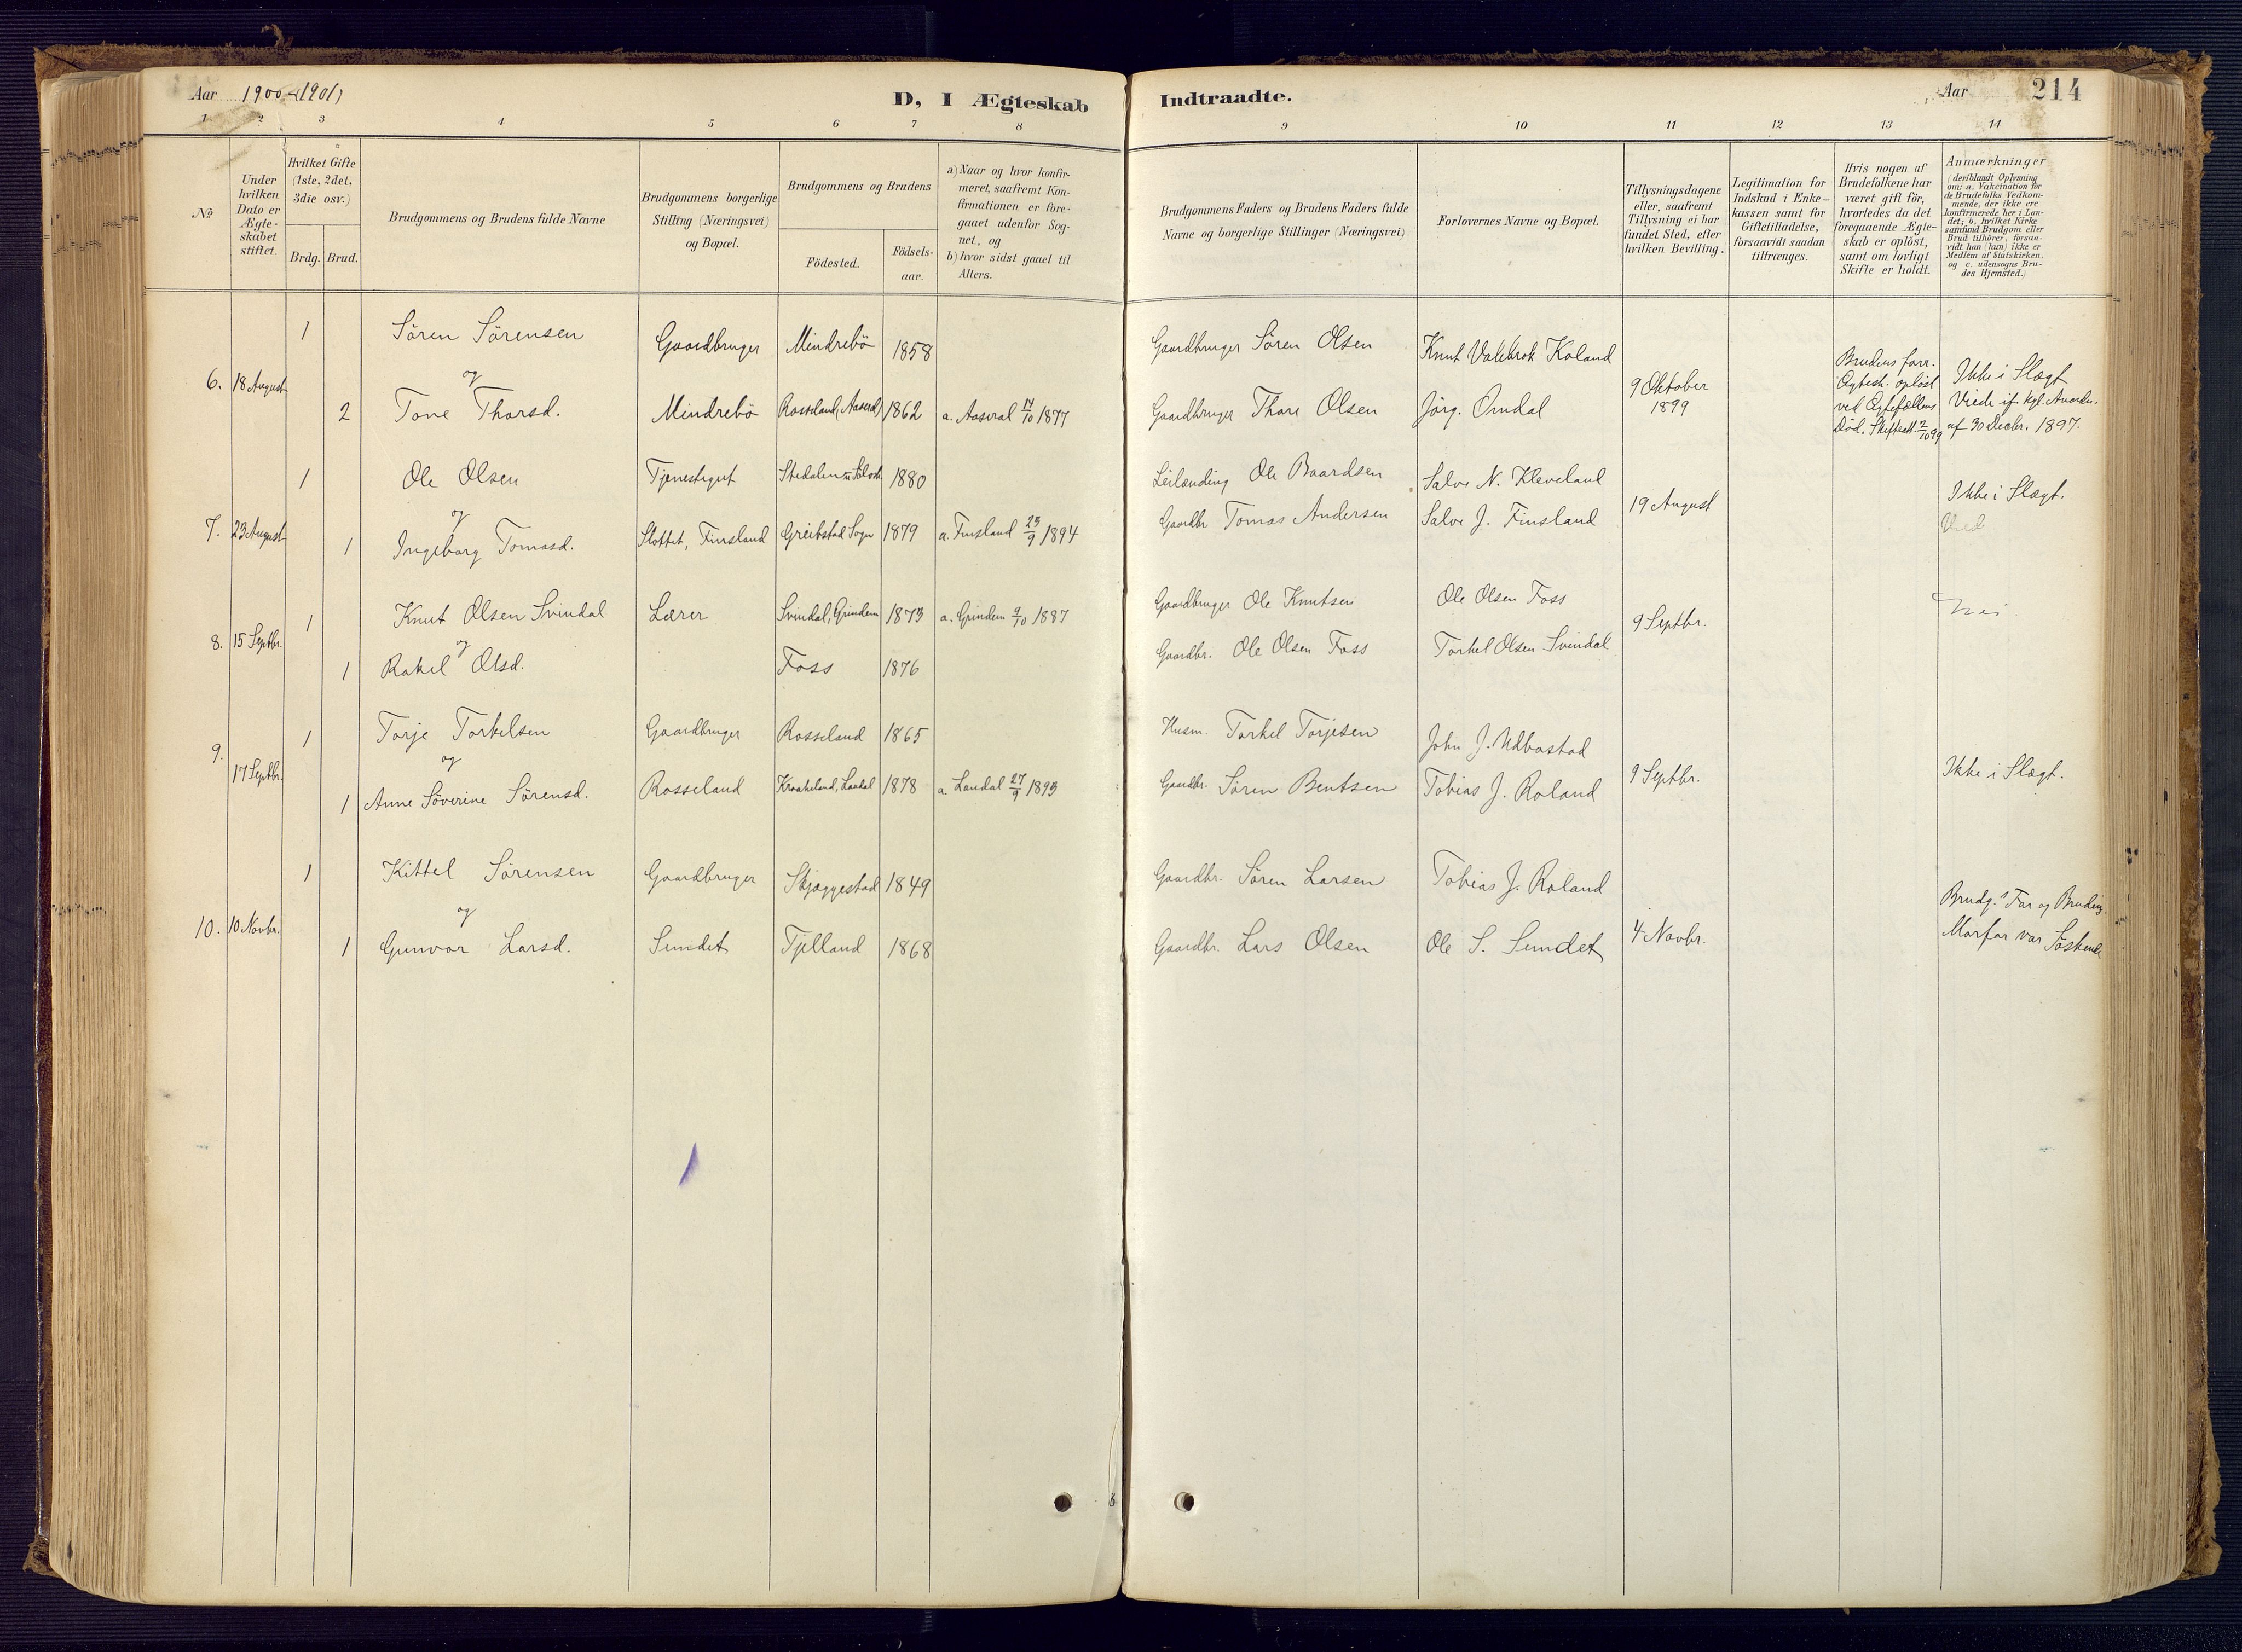 Aar 1900-(1901)
D, I Ægteskab Indtraadte.
Aar 214
1 2 3 4 5 6 7 8 9 10 11 12 13 14
No
Under hvilken Dato er Ægte-skabet stiftet.
Hvilket Gifte (1ste, 2det, 3die osv.)
Brdg. Brud.
Brudgommens og Brudens fulde Navne
Brudgommens borgerlige Stilling (Næringsvei) og Bopæl.
Brudgommens og Brudens
Födested. Födsels-aar.
a) Naar og hvor konfir-meret, saafremt Kon-firmationen er fore-gaaet udenfor Sog-net, og
b) hvor sidst gaaet til Alters.
Brudgommens Faders og Brudens Faders fulde Navne og borgerlige Stillinger (Næringsvei)
Forlovernes Navne og Bopæl.
Tillysningsdagene eller, saafremt Tillysning ei har fundet Sted, efter hvilken Bevilling.
Legitimation for Indskud i Enke-kassen samt for Giftetilladelse, forsaavidt saadan tiltrænges.
Hvis nogen af Brudefolkene har været gift för, hvorledes da det foregaaende Ægte-skab er oplöst, samt om lovligt Skifte er holdt.
Anmærkninger (deriblandt Oplysning om: a. Vakcination for de Brudefolks Vedkom-mende, der ikke ere konfirmerede her i Lan-det; b. hvilket Kirke samfund Brudgom eller Brud tilhörer, forsaa-vidt han (hun) ikke er Medlem af Statskirken. og c. udensogns Bru-des Hjemsted.)
1 Sören Sörensen Gaardbruger Mindrebö 1858 Gaardbruger Sören Olsen Knut Valebrok Koland
6. 18 August og 9 Oktober 1899
2 Tone Thorsd. Mindrebö Rosseland, Aaseral 1862 a. Aaseral 14/10 1877 Gaardbruger Thore Olsen Jörg. Omdal
Brudens forr. Ægtesk. oplöst ved Ægtefællens Död. Skifteatt. 2/10 99
Ikke i Slægt
Viede if. kgl. Anordn. af 30 Decbr. 1897.
1 Ole Olsen Tjenestegut Stedalen 1880 Leilænding Ole Baardsen Salve N. Kleveland
7. 23 August og 19 August Ikke i Slægt.
1 Ingeborg Tomasd. Slottet, Finsland Greibstad Sogn 1879 a. Finsland 23/9 1894 Gaardbr. Tomas Andersen Salve J. Finsland
Vied
1 Knut Olsen Svindal Lærer Svindal, Grindem 1873 a. Grindem 9/10 1887 Gaardbruger Ole Knutsen Ole Olsen Foss
8. 15 Septbr. og 9 Septbr. Nei.
1 Rakel Olsd. Foss 1876 Gaardbr. Ole Olsen Foss Torkel Olsen Svindal
1 Torje Torkelsen Gaardbruger Rosseland 1865 Husm. Torkel Torjesen John J. Udbostad
9. 17 Septbr. og 9 Septbr. Ikke i Slægt.
1 Anne Söverine Sörensd. Rosseland Kraakeland, Laudal 1878 a. Laudal 27/9 1893 Gaardbr. Sören Bentsen Tobias J. Roland
1 Kittel Sörensen Gaardbruger Skjæggestad 1849 Gaardbr. Sören Larsen Tobias J. Roland
10. 10 Novbr. og 4 Novbr.
1 Gunvor Larsd. Sundet Tjelland 1868 Gaardbr. Lars Olsen Ole S. Sundet
Brudg.s Far og Brudens
Morfar var Söskende